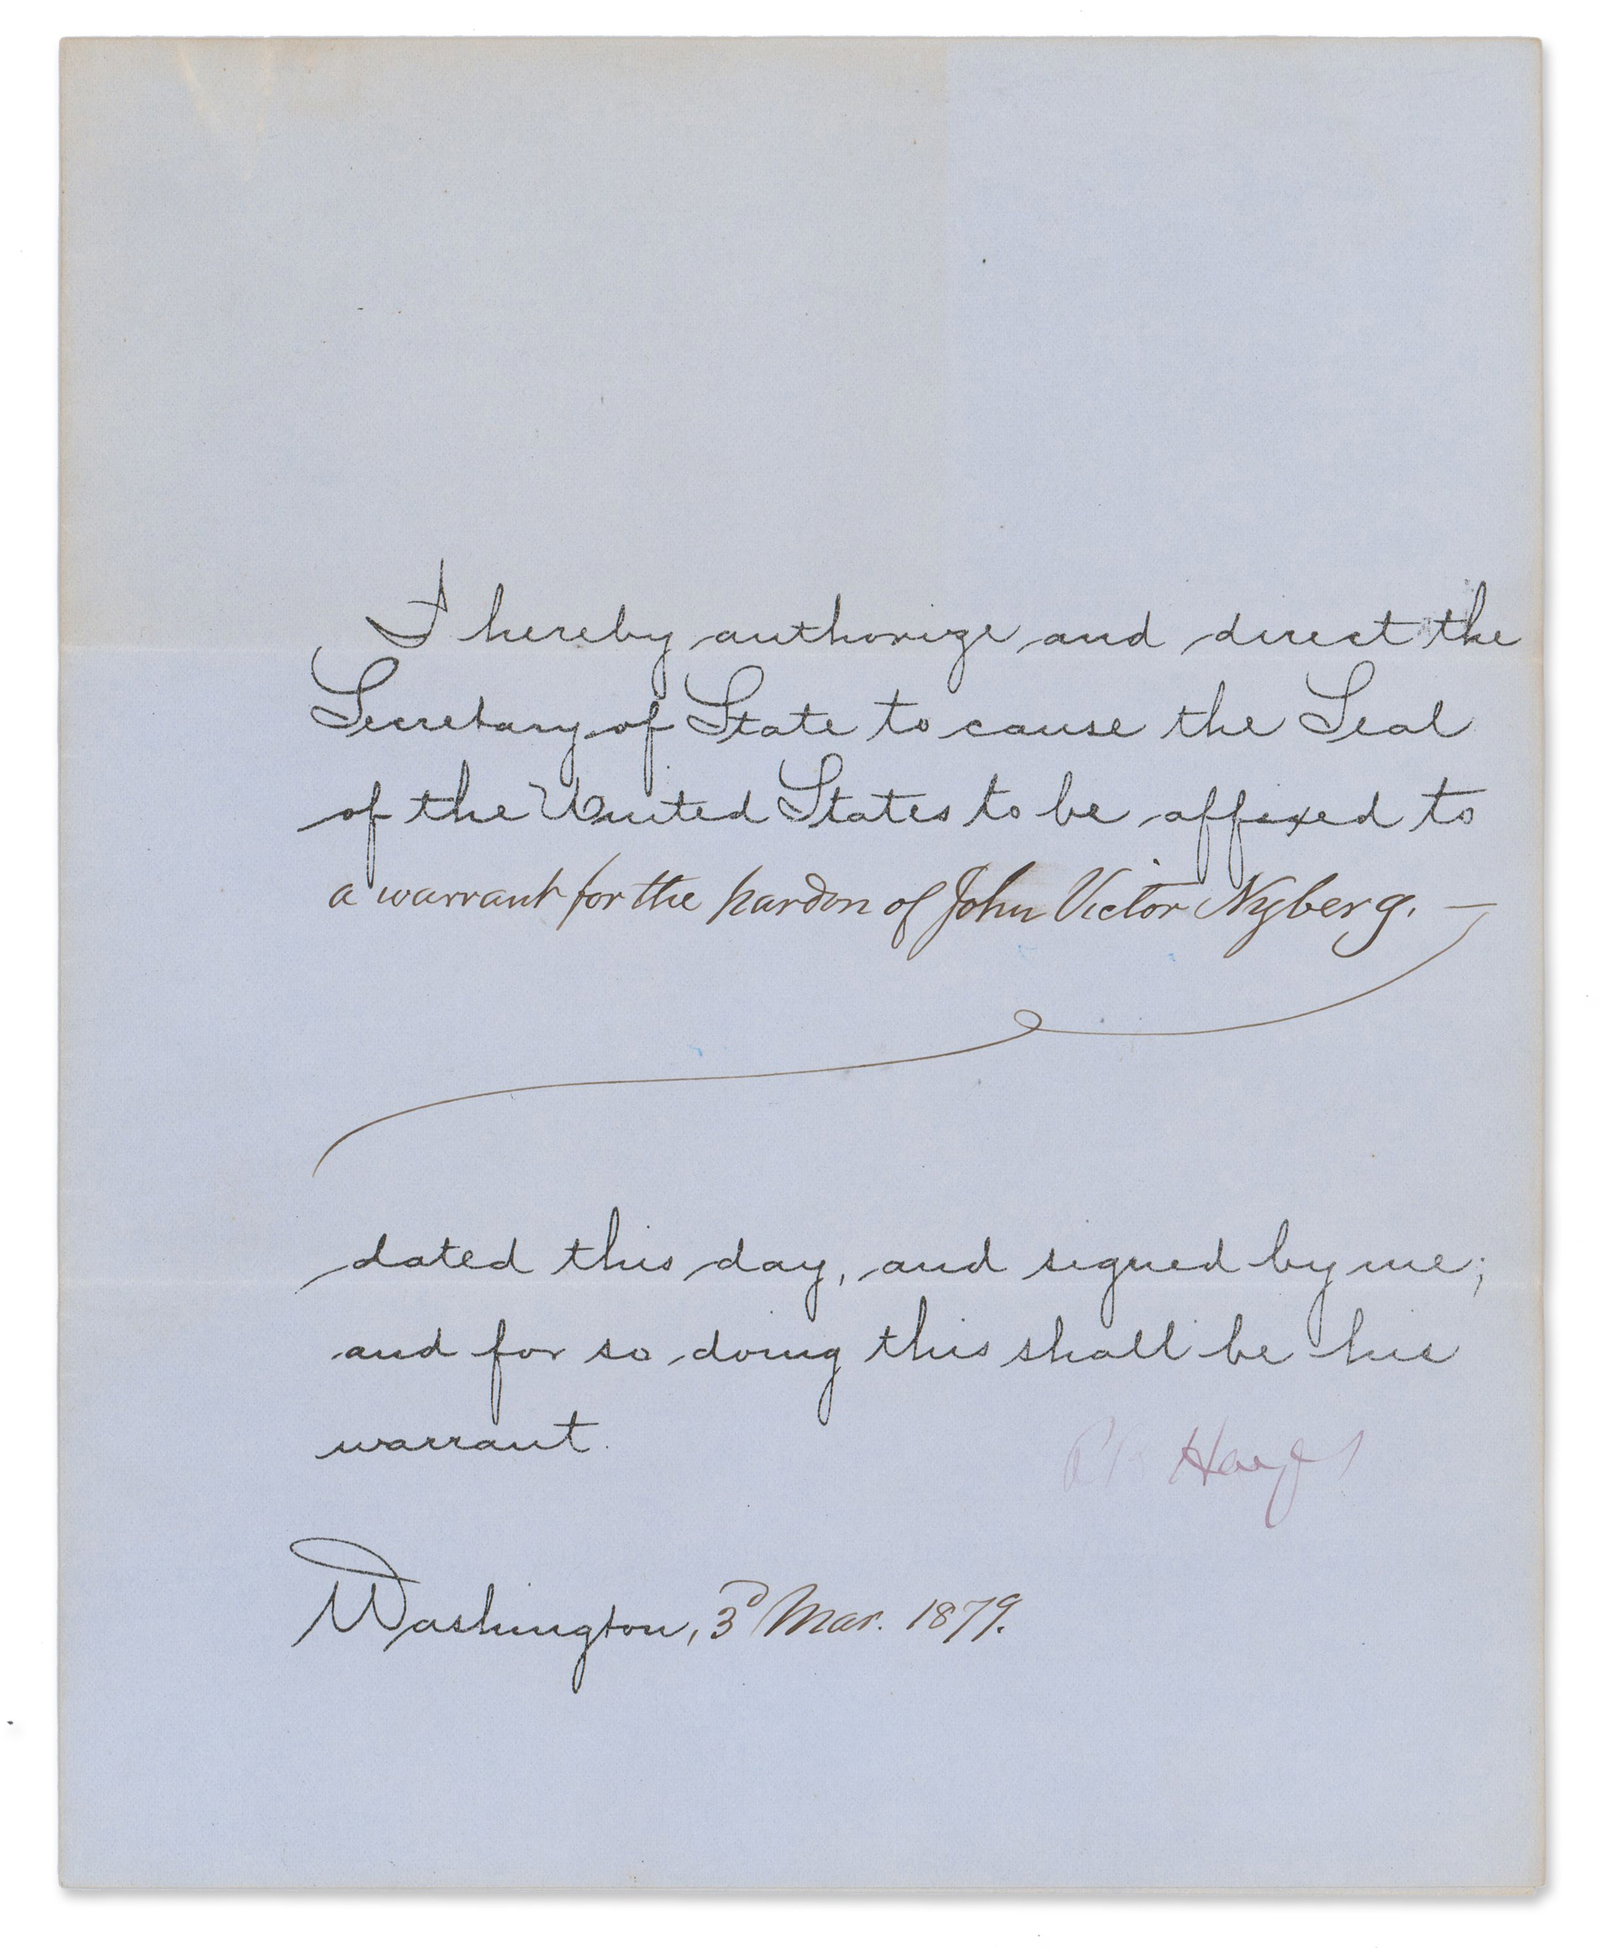 I hereby authorize and direct the
Secretary of State to cause the Seal
of the United States to be affixed to
a warrant for the pardon of John Victor Nyberg. —
dated this day, and signed by me;
and for so doing this shall be his
warrant.
R B Hayes
Washington, 3d Mar. 1879.